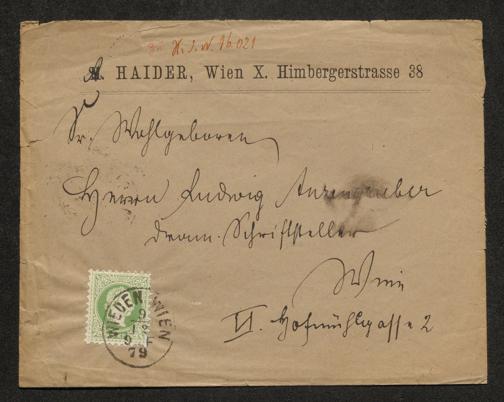 zu H.I.N. 16.021
A. HAIDER, Wien X. Himbergerstrasse 38
Sr. Wohlgeboren
Herrn Ludwig Anzengruber
dram. Schriftsteller
Wien
VI. Hofmühlgasse 2
WIEDEN WIEN
79